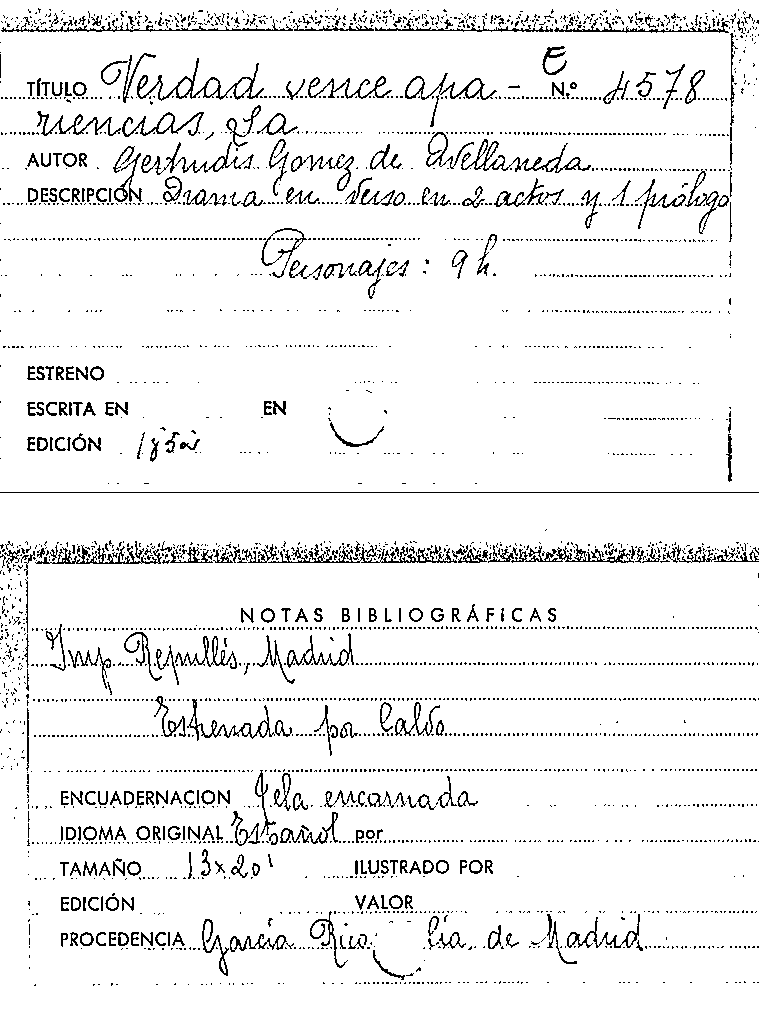 E
TÍTULO Verdad vence apa- N.º 4578
riencias, La
AUTOR Gertrudis Gomez de Avellaneda
DESCRIPCIÓN Drama en verso en 2 actos y 1 prólogo
Personajes: 9 h.
ESTRENO
ESCRITA EN EN
EDICIÓN 1852
NOTAS BIBLIOGRÁFICAS
Imp. Repullés, Madrid
Estrenada por Calvo
ENCUADERNACION Tela encarnada
IDIOMA ORIGINAL Español por
TAMAÑO 13x20 ILUSTRADO POR
EDICIÓN VALOR
PROCEDENCIA García Rico, Cía. de Madrid